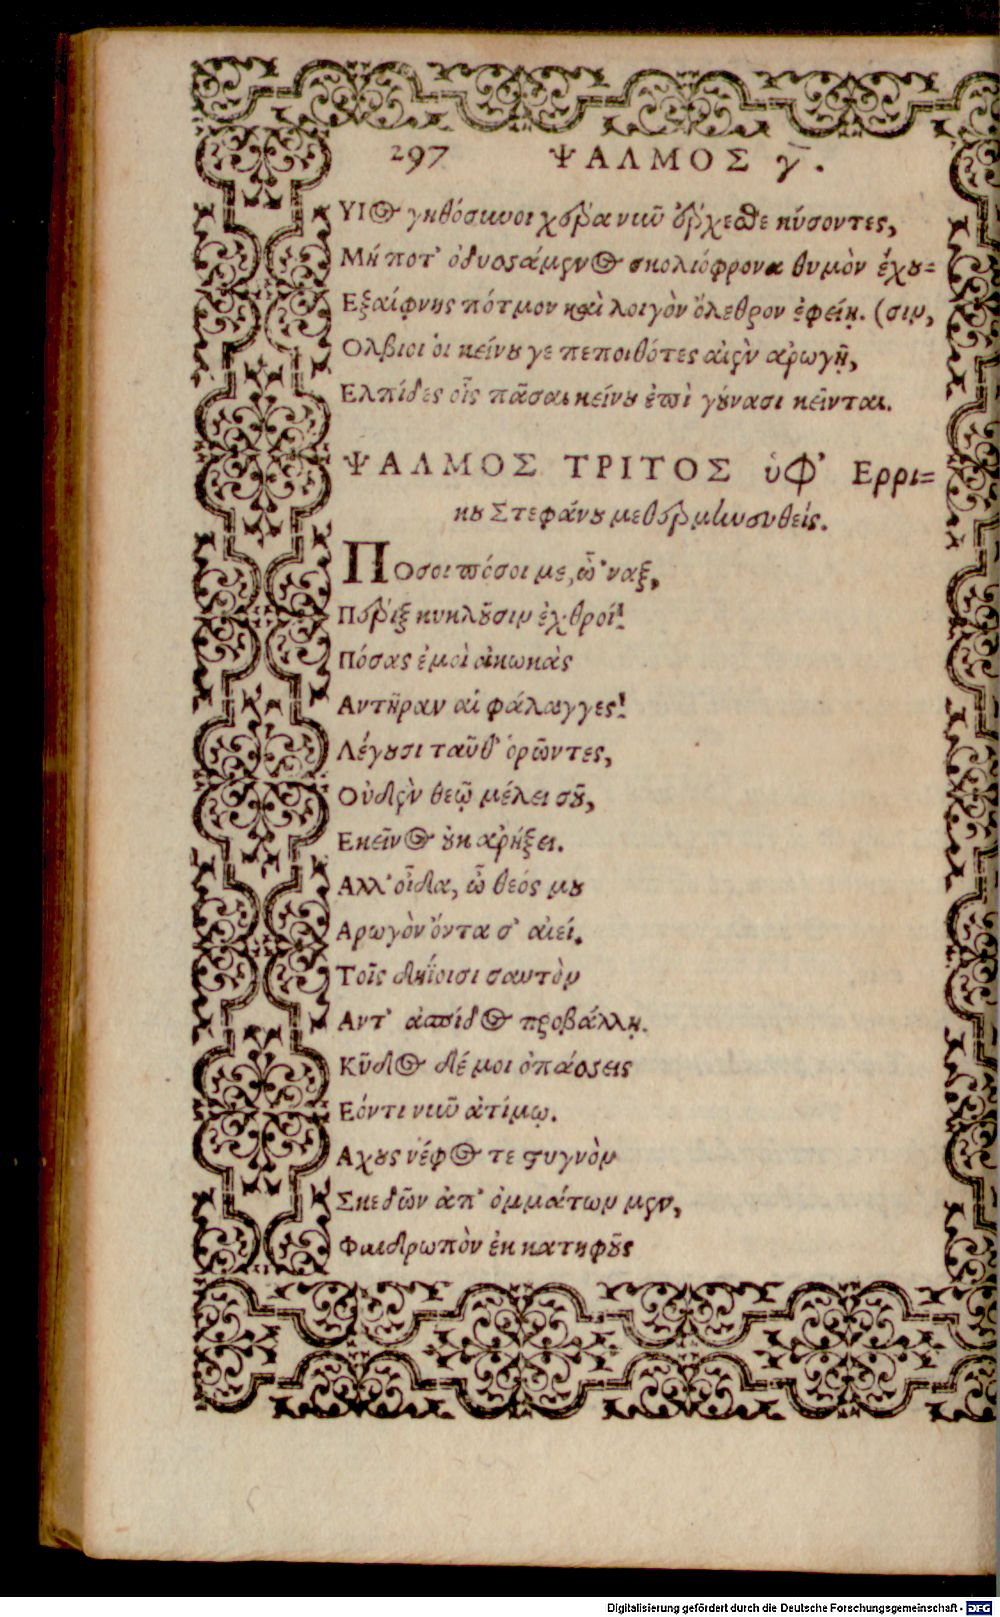 297 ΨΑΛΜΟΣ γ̄.
ΥΙος γηθόσυνοι χεῖρα νιῦ ἔρχεσθε κύσοντες,
Μή ποτ' ὀδυσσάμενος σκολιόφρονα θυμὸν ἔχου=
Εξαίφνης πότμον καὶ λοιγὸν ὄλεθρον ἐφείῃ. (σιν,
Ολβιοι οἱ κείνου γε πεποιθότες αἰὲν ἀρωγῇ,
Ελπίδες οἷς πᾶσαι κείνου ἐπὶ γούνασι κεῖνται.
ΨΑΛΜΟΣ ΤΡΙΤΟΣ ὑφ' Ερρί=
κου Στεφάνου μεθερμηνευθείς.
Ποσοι πόσοι με, ὦ 'ναξ,
Πέριξ κυκλοῦσιν ἐχθροί!
Πόσας ἐμοὶ ἀκωκὰς
Αντῆραν αἱ φάλαγγες!
Λέγουσι ταῦθ' ὁρῶντες,
Οὐδὲν θεῷ μέλει σοῦ,
Εκεῖνος οὐκ ἀρήξει.
Αλλ' οἶδα, ὦ θεός μου
Αρωγὸν ὄντα σ' αἰεί.
Τοῖς δηΐοισι σαυτὸν
Αντ' ἀσπίδος προβάλλῃ.
Κῦδος δέ μοι ὀπάσσεις
Εόντι νιῦ ἀτίμῳ.
Αχους νέφος τε στυγνὸν
Σκεδῶν ἀπ' ὀμμάτων μεν,
Φαιδρωπὸν ἐκ κατηφοῦς
Digitalisierung gefördert durch die Deutsche Forschungsgemeinschaft - DFG